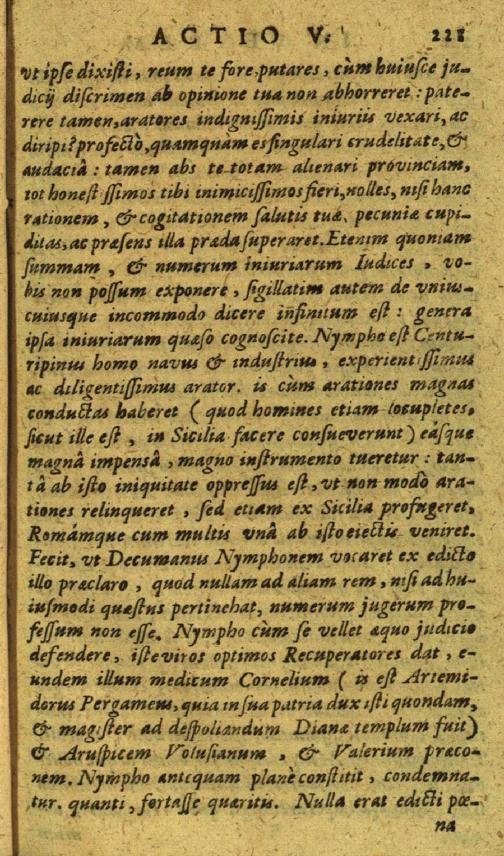 ACTIO V. 221
vt ipse dixisti, reum te fore putares, cùm huiusce ju-
dicij discrimen ab opinione tua non abhorreret: pate-
rere tamen, aratores indignissimis iniuriis vexari, ac
diripi? profectò, quamquàm es singulari crudelitate, &
audaciâ: tamen abs te totam alienari provinciam,
tot honestissimos tibi inimicissimos fieri, nolles, nisi hanc
rationem, & cogitationem salutis tuæ, pecuniæ cupi-
ditas, ac præsens illa præda superaret. Etenim quoniam
summam, & numerum iniuriarum Iudices, vo-
bis non possum exponere, sigillatim autem de vnius-
cuiusque incommodo dicere infinitum est: genera
ipsa iniuriarum quæso cognoscite. Nympho est Centu-
ripinus homo navus & industrius, experientissimus
ac diligentissimus arator. is cùm arationes magnas
conductas haberet (quod homines etiam locupletes,
sicut ille est, in Sicilia facere consueverunt) eásque
magnâ impensâ, magno instrumento tueretur: tan-
tâ ab isto iniquitate oppressus est, vt non modò ara-
tiones relinqueret, sed etiam ex Sicilia profugeret,
Romámque cum multis vnâ ab isto eiectis veniret.
Fecit, vt Decumanus Nymphonem vocaret ex edicto
illo præclaro, quod nullam ad aliam rem, nisi ad hu-
iusmodi quæstus pertinebat, numerum jugerum pro-
fessum non esse. Nympho cùm se vellet æquo judicio
defendere, iste viros optimos Recuperatores dat, e-
undem illum medicum Cornelium (is est Artemi-
dorus Pergameus, quia in sua patria dux isti quondam,
& magister ad despoliandum Dianæ templum fuit)
& Aruspicem Volusianum, & Valerium præco-
nem. Nympho antequam planè constitit, condemna-
tur. quanti, fortasse quæritis. Nulla erat edicti pœ-
na